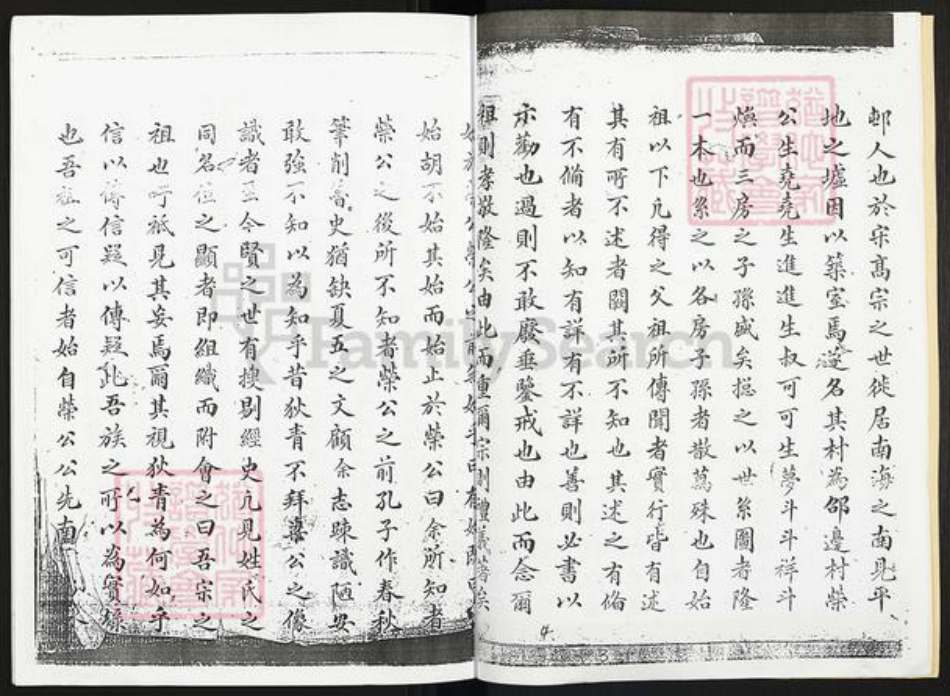 邨人也於宋髙宗之世徙居南海之南見平
地之墟因以築室焉遂名其村為邵邊村榮
公生堯堯生進進生叔可可生夢斗斗祥斗
煥而三房之子孫盛矣揔之以世系圖者隆
一本也系之以各房子孫者散萬殊也自始
祖以下凢得之父祖所傳聞者實行皆有述
其有所不述者闕其所不知也其述之有倫
有不備者以知有詳有不詳也善則必書以
示勸也過則不敢廢垂鑒戒也由此而念爾
祖則孝敬隆矣由此而重爾宗則禮義著矣
始胡不始其始而始止於榮公曰余所知者
榮公之後所不知者榮公之前孔子作春秋
筆削魯史猶缺夏五之文顧余志踈識陋安
敢強不知以為知乎昔狄青不拜梁公之像
識者至今賢之世有搜剔經史凢見姓氏之
同名位之顯者即組織而附會之曰吾宗之
祖也吁祗見其妄焉爾其視狄青為何如乎
信以傳信疑以傳疑此吾族之所以為實錄
也吾祖之可信者始自榮公公先南
FamilySearch